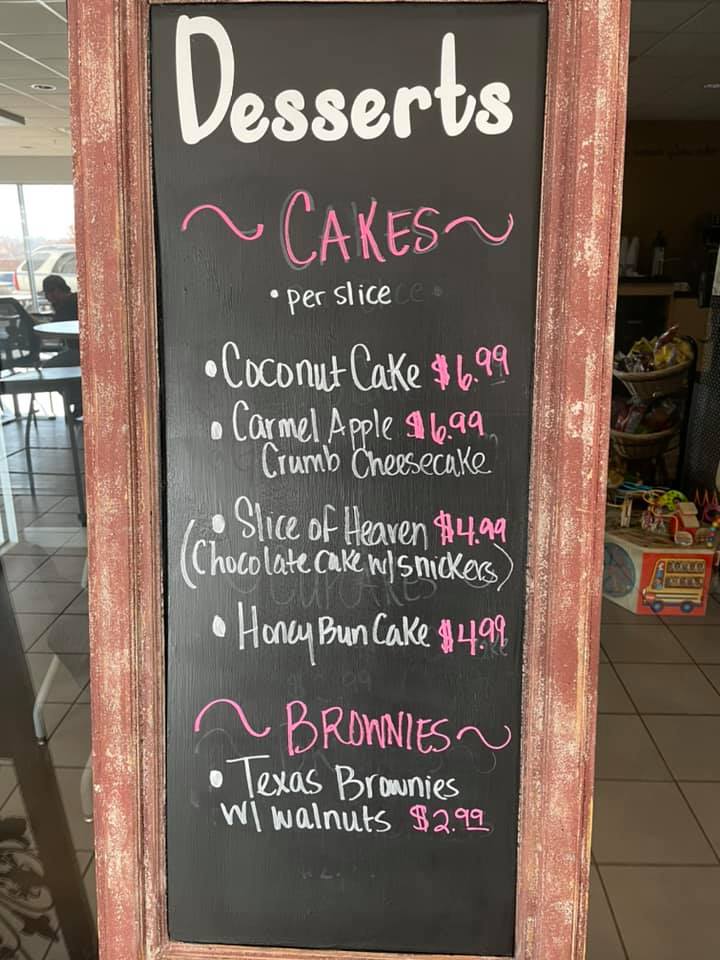 Desserts
~ CAKES ~
• per slice
• Coconut Cake $6.99
• Carmel Apple $6.99
Crumb Cheesecake
• Slice of Heaven $4.99
(Chocolate cake w/ snickers)
• Honey Bun Cake $4.99
~ BROWNIES ~
• Texas Brownies
w/ walnuts $2.99